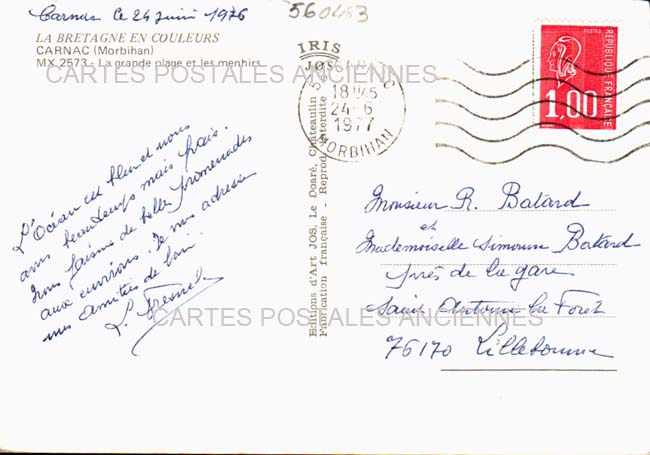 Carnac le 24 juin 1976
560453
LA BRETAGNE EN COULEURS
CARNAC (Morbihan)
MX 2573 - La grande plage et les menhirs
CARTES POSTALES ANCIENNES
IRIS
JOS
18H45
24-6
1977
MORBIHAN
POSTES
1,00
REPUBLIQUE FRANÇAISE
L'Océan est bleu et nous
avons beau temps mais frais.
Nous faisons de belles promenades
aux environs. Je vous adresse
mes amitiés de loin.
L. Fresnel
Editions d'Art JOS, Le Doaré, Châteaulin
Fabrication française - Reprod. interdite
Monsieur R. Batard
et
Mademoiselle Simonne Batard
près de la gare
Saint Antoine la Foret
76170 Lillebonne
CARTES POSTALES ANCIENNES